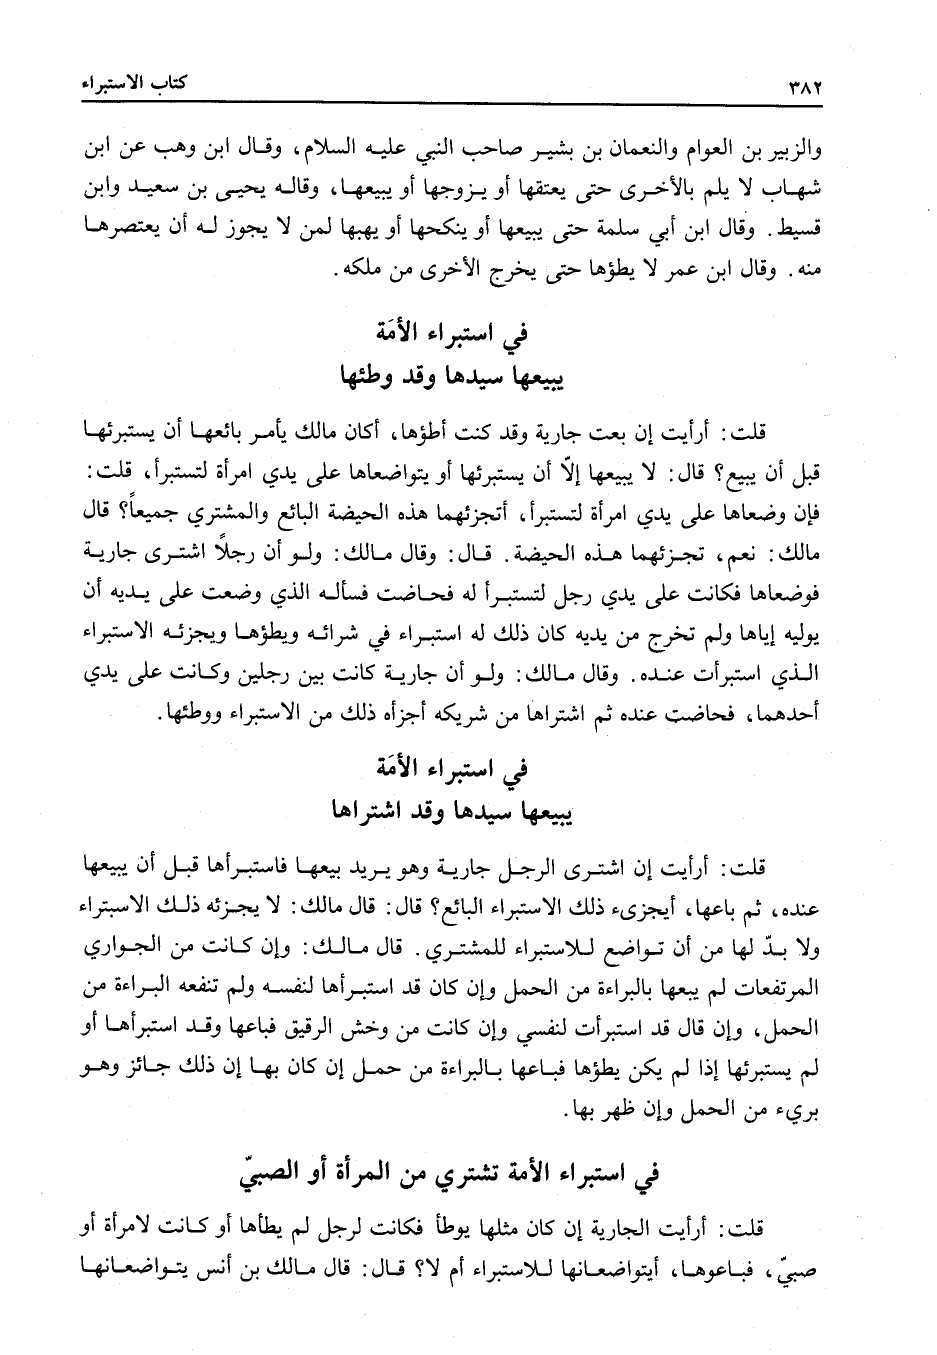 ٣٨٢ كتاب الاستبراء
والزبير بن العوام والنعمان بن بشير صاحب النبي عليه السلام، وقال ابن وهب عن ابن
شهاب لا يلم بالأخرى حتى يعتقها أو يزوجها أو يبيعها، وقاله يحيى بن سعيد وابن
قسيط. وقال ابن أبي سلمة حتى يبيعها أو ينكحها أو يهبها لمن لا يجوز له أن يعتصرها
منه. وقال ابن عمر لا يطؤها حتى يخرج الأخرى من ملكه.
في استبراء الأمَة
يبيعها سيدها وقد وطئها
قلت: أرأيت إن بعت جارية وقد كنت أطؤها، أكان مالك يأمر بائعها أن يستبرئها
قبل أن يبيع؟ قال: لا يبيعها إلّا أن يستبرئها أو يتواضعاها على يدي امرأة لتستبرأ، قلت:
فإن وضعاها على يدي امرأة لتستبرأ، أتجزئهما هذه الحيضة البائع والمشتري جميعاً؟ قال
مالك: نعم، تجزئهما هذه الحيضة. قال: وقال مالك: ولو أن رجلاً اشترى جارية
فوضعاها فكانت على يدي رجل لتستبرأ له فحاضت فسأله الذي وضعت على يديه أن
يوليه إياها ولم تخرج من يديه كان ذلك له استبراء في شرائه ويطؤها ويجزئه الاستبراء
الذي استبرأت عنده. وقال مالك: ولو أن جارية كانت بين رجلين وكانت على يدي
أحدهما، فحاضت عنده ثم اشتراها من شريكه أجزأه ذلك من الاستبراء ووطئها.
في استبراء الأمَة
يبيعها سيدها وقد اشتراها
قلت: أرأيت إن اشترى الرجل جارية وهو يريد بيعها فاستبرأها قبل أن يبيعها
عنده، ثم باعها، أيجزىء ذلك الاستبراء البائع؟ قال: قال مالك: لا يجزئه ذلك الاسبتراء
ولا بدّ لها من أن تواضع للاستبراء للمشتري. قال مالك: وإن كانت من الجواري
المرتفعات لم يبعها بالبراءة من الحمل وإن كان قد استبرأها لنفسه ولم تنفعه البراءة من
الحمل، وإن قال قد استبرأت لنفسي وإن كانت من وخش الرقيق فباعها وقد استبرأها أو
لم يستبرئها إذا لم يكن يطؤها فباعها بالبراءة من حمل إن كان بها إن ذلك جائز وهو
بريء من الحمل وإن ظهر بها.
في استبراء الأمة تشتري من المرأة أو الصبيّ
قلت: أرأيت الجارية إن كان مثلها يوطأ فكانت لرجل لم يطأها أو كانت لامرأة أو
صبيّ، فباعوها، أيتواضعانها للاستبراء أم لا؟ قال: قال مالك بن أنس يتواضعانها